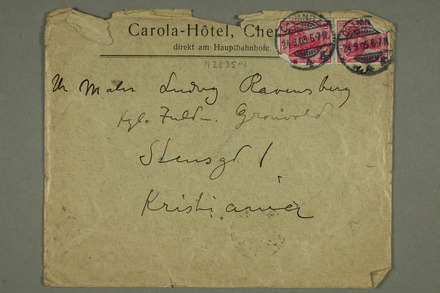 Carola-Hôtel, Che
direkt am Hauptbahnhofe.
N 2835-1
Hr Maler Ludvig Ravensberg
Stensgd 1
Kristiania